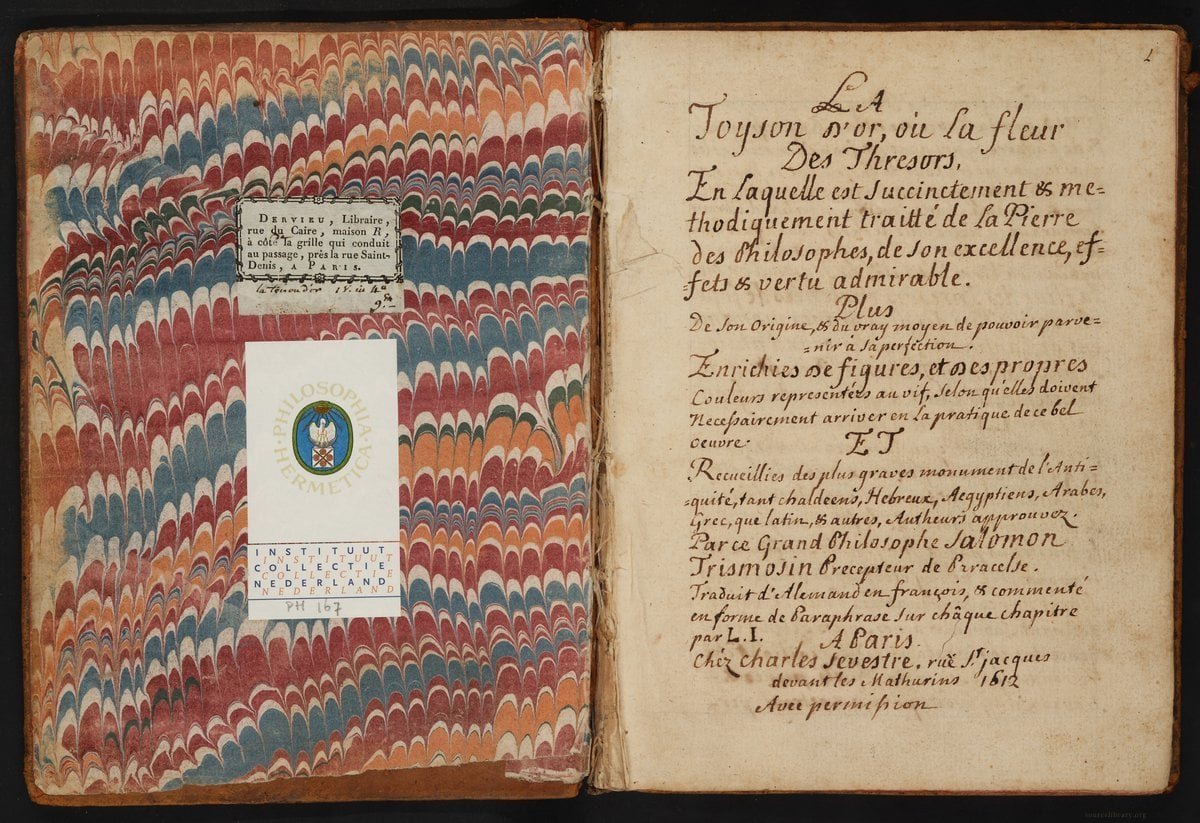 DERVIEU, Libraire,
rue du Caire, maison R,
à côté la grille qui conduit
au passage, près la rue Saint-
Denis, A PARIS.
la toison d'or 1 v. in 4°
9.
PHILOSOPHIA · HERMETICA ·
INSTITUUT
INSTITUUT
COLLECTIE
COLLECTIE
NEDERLAND
NEDERLAND
PH 167
1
LA
Toyson d'or, où La fleur
Des Thresors,
En Laquelle est Succinctement & me=
thodiquement traitté de La Pierre
des Philosophes, de son excellence, ef=
=fets & vertu admirable.
Plus
De Son Origine, & du vray moyen de pouvoir parve=
=nir à sa perfection.
Enrichies de figures, et des propres
Couleurs representées au vif, selon qu'elles doivent
Necessairement arriver en La pratique de ce bel
oeuvre.
ET
Recueillies des plus graves monument de l'Anti=
=quité, tant chaldeens, Hebreux, Aegyptiens, Arabes,
Grec, que latin, & autres, Autheurs approuvez.
Par ce Grand Philosophe Salomon
Trismosin Precepteur de Paracelse.
Traduit d'Alemand en françois, & commenté
en forme de Paraphrase sur châque chapitre
par L.I.
A Paris.
Chéz Charles Sevestre, rue St jacques
devant les Mathurins 1612
Avec permission
sourcelibrary.org